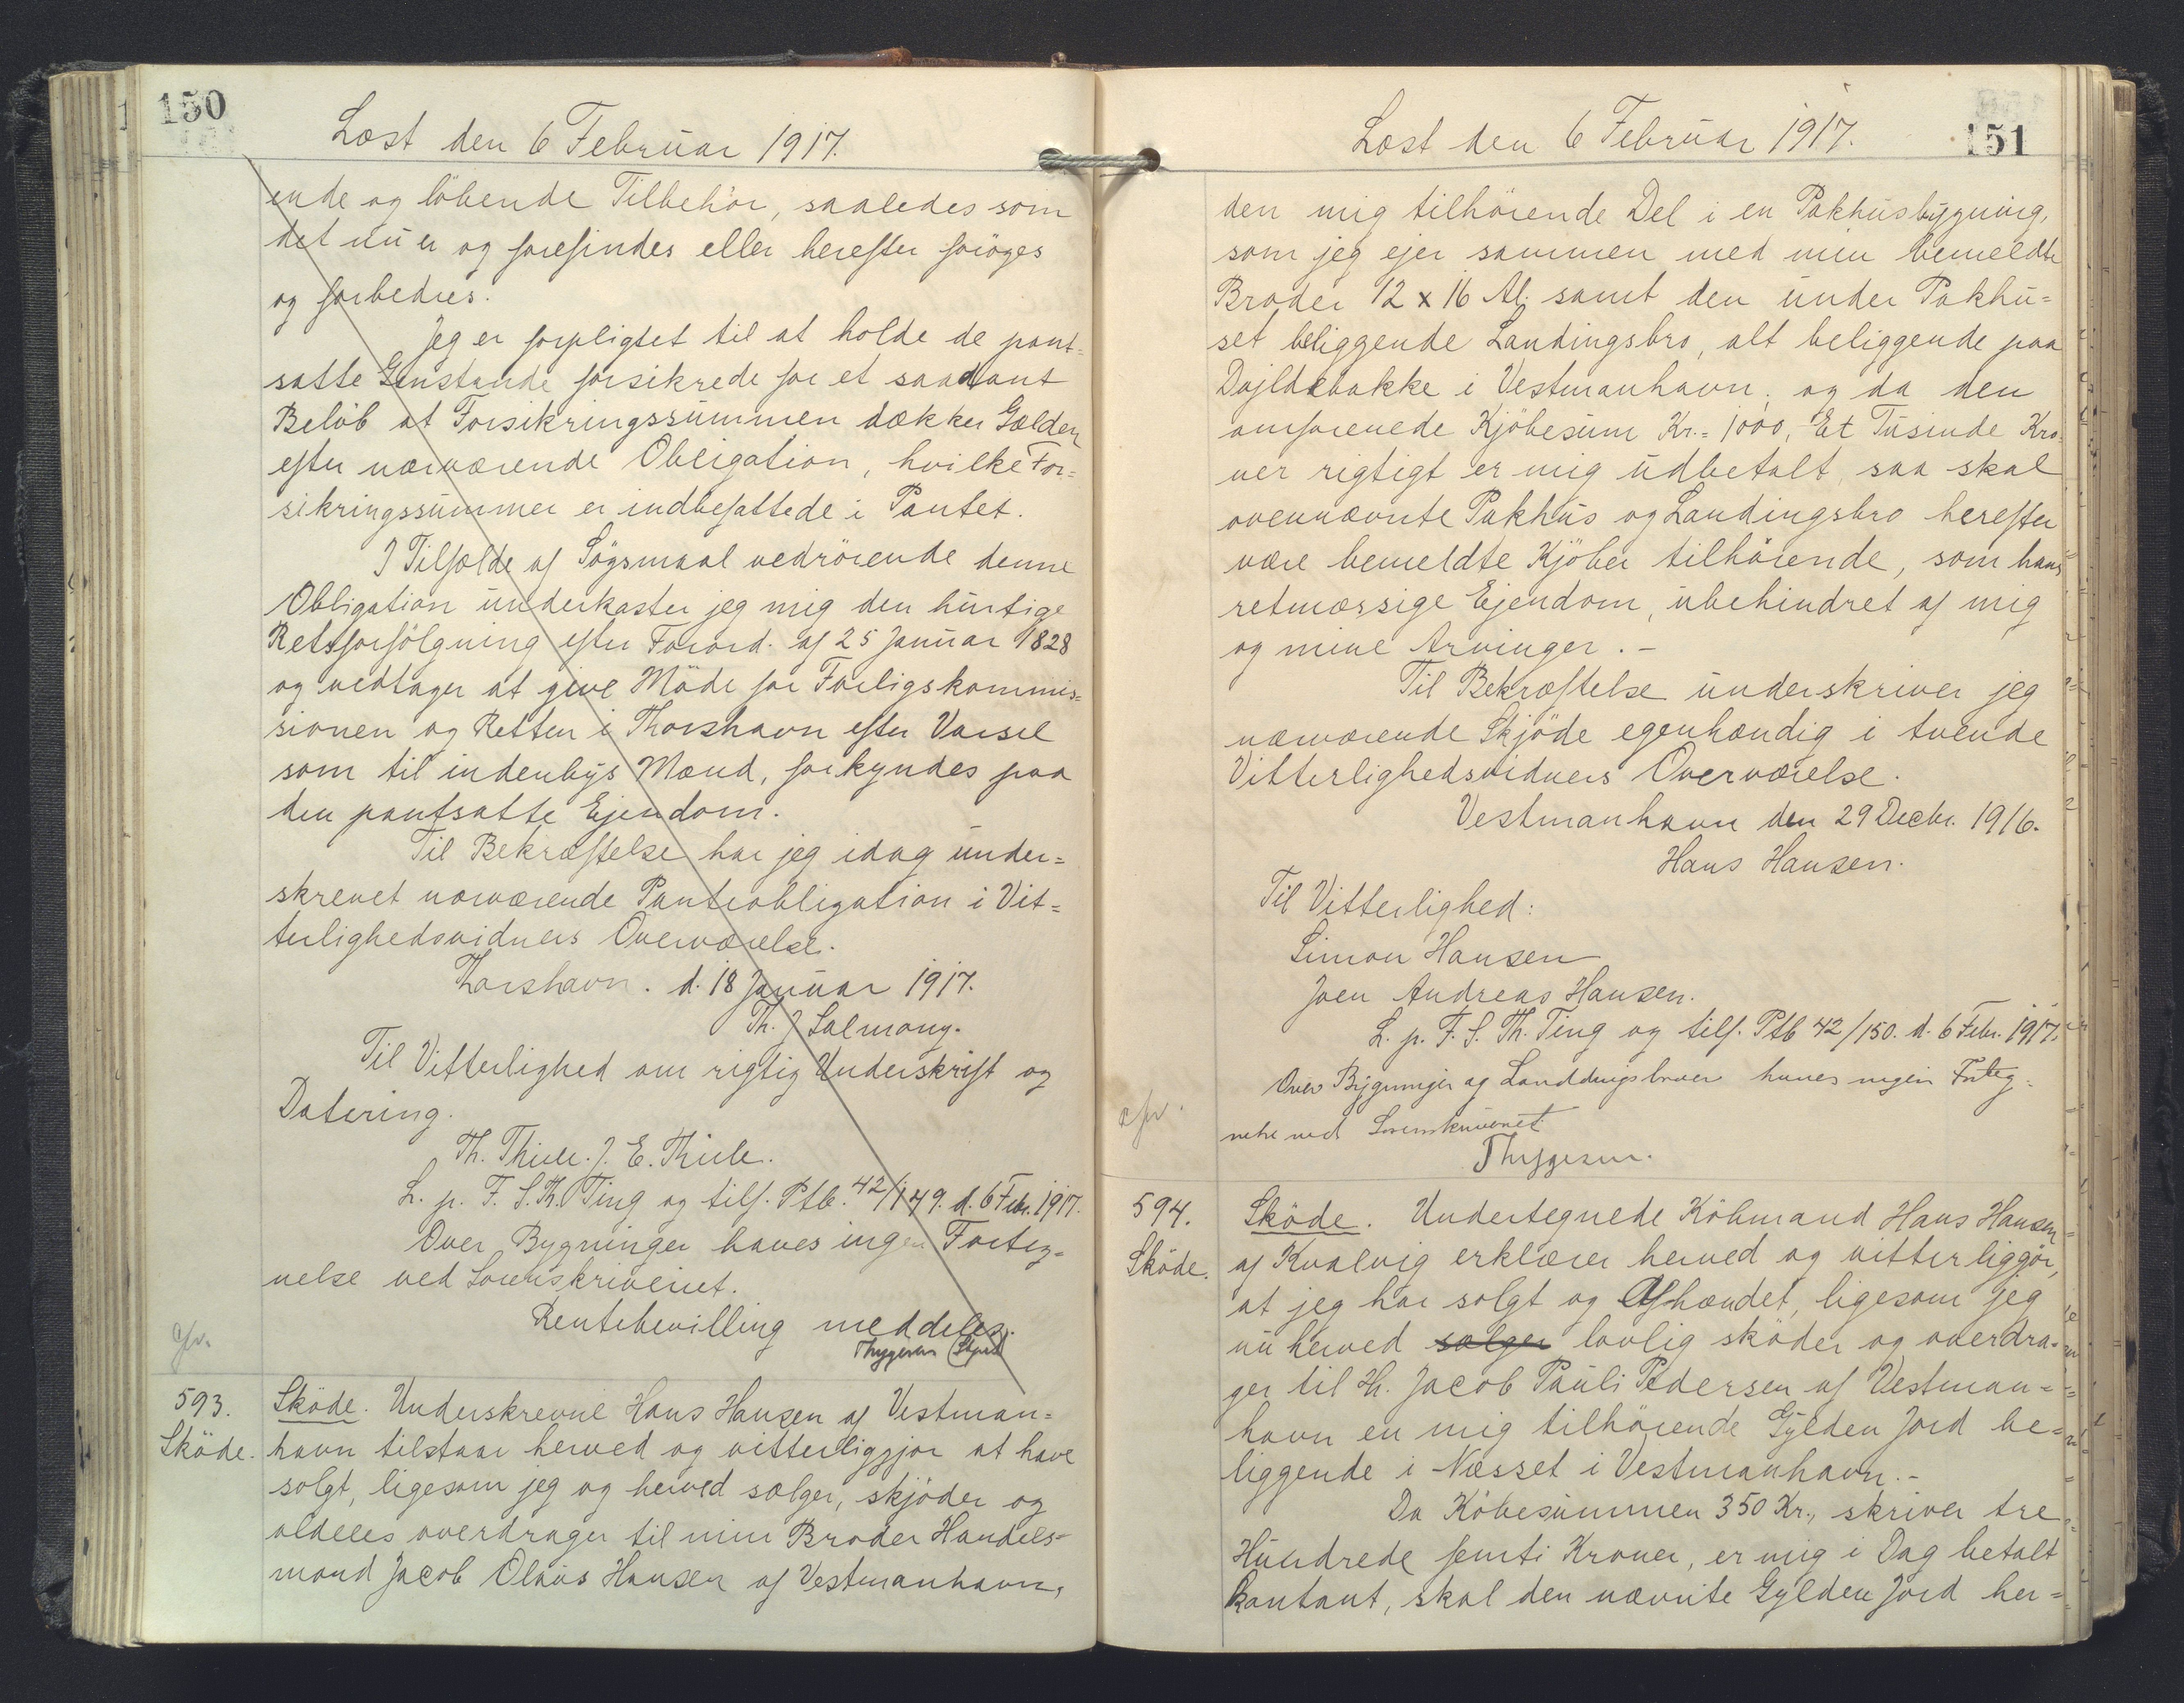 150
Læst den 6 Februar 1917.
ende og löbende Tilbehör, saaledes som
det nu er og forefindes eller herefter foröges
og forbedres.
Jeg er forpligtet til at holde de pant-
satte Genstande forsikrede for et saadant
Belöb at Forsikringssummen dækker Gælden
efter nærværende Obligation, hvilke For=
sikringssummer er indbefattede i Pantet.
I Tilfælde af Sögsmaal vedrörende denne
Obligation underkaster jeg mig den hurtige
Retsforfölgning efter Forord. af 25 Januar 1828
og vedtager at give Möde for Forligskommis=
sionen og Retten i Thorshavn efter Varsel
som til indenbys Mænd, forkyndes paa
den pantsatte Ejendom.
Til Bekræftelse har jeg idag under=
skrevet nærværende Panteobligation i Vit=
terlighedsvidners Overværelse.
Thorshavn. d. 18 Januar 1917.
Th. J Salmony.
Til Vitterlighed om rigtig Underskrift og
Datering.
Th. Thiele. J. E. Thiele.
L. p. F. S. Th. Ting og tilf. Ptb. 42/149. d. 6 Febr. 1917.
Over Bygninger haves ingen Forteg=
nelse ved Sorenskriveriet.
Rentebevilling meddeles.
Thygesen
cfr.
593.
Sköde.
Sköde. Underskrevne Hans Hansen af Vestman=
havn tilstaar herved og vitterliggjor at have
solgt, ligesom jeg og herved sælger, skjöder og
aldeles overdrager til min Broder Handels-
mand Jacob Olaus Hansen af Vestmanhavn,
Læst den 6 Februar 1917.
151
den mig tilhörende Del i en Pakhusbygning,
som jeg ejer sammen med min bemeldte
Broder 12 x 16 Al. samt den under Pakhu=
set beliggende Landingsbro, alt beliggende paa
i Vestmanhavn; og da den
omforenede Kjöbesum Kr.= 1000, Et Tusinde Kro-
ner rigtigt er mig udbetalt, saa skal
ovennævnte Pakhus og Landingsbro herefter
være bemeldte Kjöber tilhörende, som hans
retmæssige Ejendom, ubehindret af mig
og mine Arvinger. -
Til Bekræftelse underskriver jeg
nærværende Skjöde egenhændig i tvende
Vitterlighedsvidners Overværelse.
Vestmanhavn den 29 Decbr. 1916.
Hans Hansen.
Til Vitterlighed:
Simon Hansen
Joen Andreas Hansen.
L. p. F. S. Th. Ting og tilf. Ptb 42/150. d. 6 Febr. 1917.
Over Bygninger og Landdingsbroer haves ingen Forteg-
nelse ved Sorenskriveriet.
Thygesen.
cfr.
594.
Sköde.
Sköde. Undertegnede Köbmand Hans Hansen
af Kvalvig erklærer herved og vitterliggör,
at jeg har solgt og Afhændet, ligesom jeg
nu herved sælger lovlig sköder og overdra-
ger til Hr. Jacob Pauli Pedersen af Vestman=
havn en mig tilhörende Gylden Jord be=
liggende i Næsset i Vestmanhavn.-
Da Köbesummen 350 Kr., skriver tre
Hundrede femti Kroner, er mig i Dag betalt
kontant, skal den nævnte Gylden Jord her=